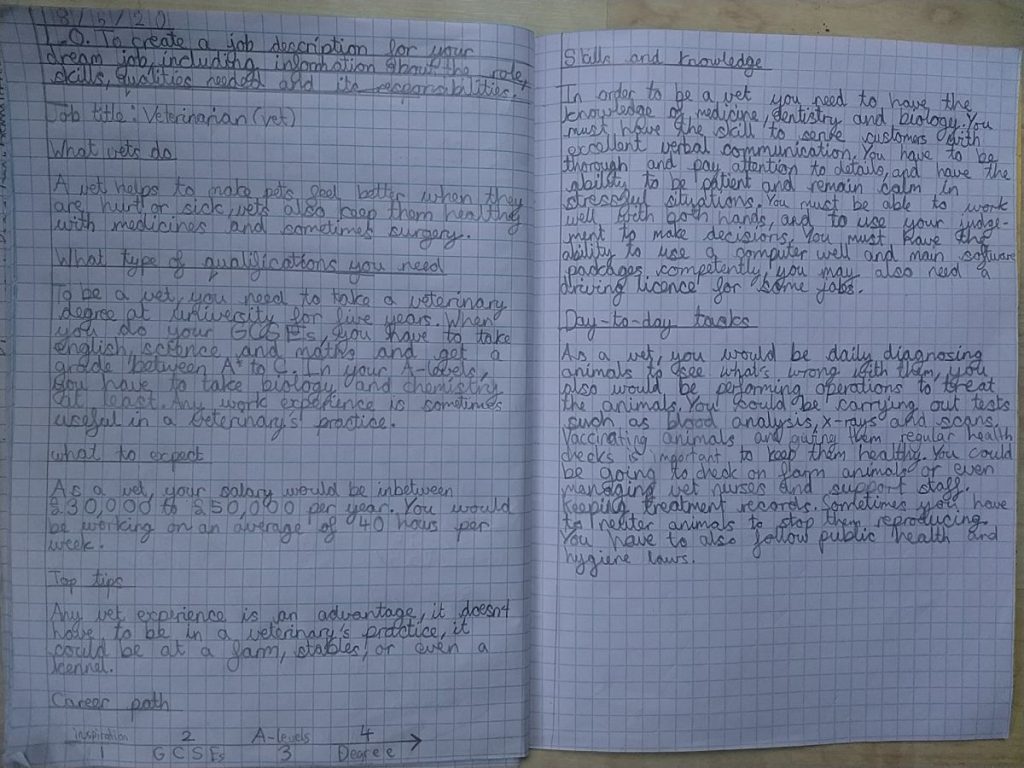 18/5/20
L.O. To create a job description for your
dream job, including information about the role,
skills, qualities needed and its responsibilities.
Job title: Veterinarian (vet)
What vets do
A vet helps to make pets feel better when they
are hurt or sick, vets also keep them healthy
with medicines and sometimes surgery.
What type of qualifications you need
To be a vet, you need to take a veterinary
degree at university for five years. When
you do your GCSEs, you have to take
english, science and maths and get a
grade between A* to C. In your A-levels,
you have to take biology and chemistry
at least. Any work experience is sometimes
useful in a veterinary's practice.
what to expect
As a vet, your salary would be inbetween
£30,000 to £50,000 per year. You would
be working on an average of 40 hours per
week.
Top tips
Any vet experience is an advantage, it doesn't
have to be in a veterinary's practice, it
could be at a farm, stables, or even a
kennel.
Career path
inspiration 2 A-levels 4
1 GCSEs 3 Degree
Skills and knowledge
In order to be a vet you need to have the
knowledge of medicine, dentistry and biology. You
must have the skill to serve customers with
excellent verbal communication. You have to be
thorough and pay attention to details, and have the
ability to be patient and remain calm in
stressful situations. You must be able to work
well with both hands, and to use your judge-
ment to make decisions. You must have the
ability to use a computer well and main software
packages competently, you may also need a
driving licence for some jobs.
Day-to-day tasks
As a vet, you would be daily diagnosing
animals to see what's wrong with them, you
also would be performing operations to treat
the animals. You could be carrying out tests
such as blood analysis, x-rays and scans.
Vaccinating animals and giving them regular health
checks is important to keep them healthy. You could
be going to check on farm animals or even
managing vet nurses and support staff.
Keeping treatment records. Sometimes you have
to neuter animals to stop them reproducing.
You have to also follow public health and
hygiene laws.